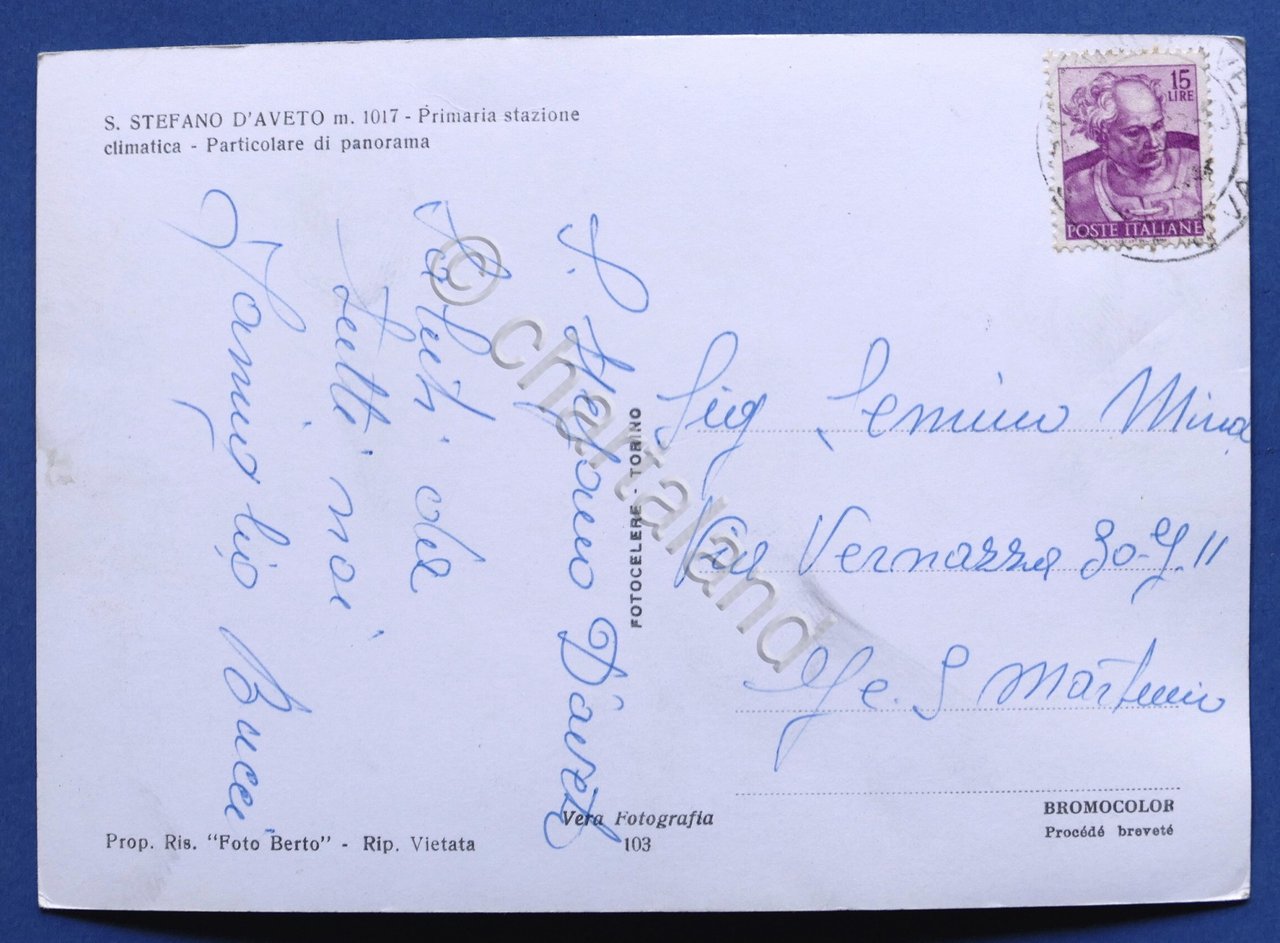 S. STEFANO D'AVETO m. 1017 - Primaria stazione
climatica - Particolare di panorama
15
LIRE
POSTE ITALIANE
S. Stefano D'aveto
Saluti da
tutti noi
Famiglia Bucci
Sig Semino Mina
Via Vernazza 30-G. 11
Ge. S Martino
FOTOCELERE - TORINO
© chartaland
Vera Fotografia
103
Prop. Ris. "Foto Berto" - Rip. Vietata
BROMOCOLOR
Procédé breveté